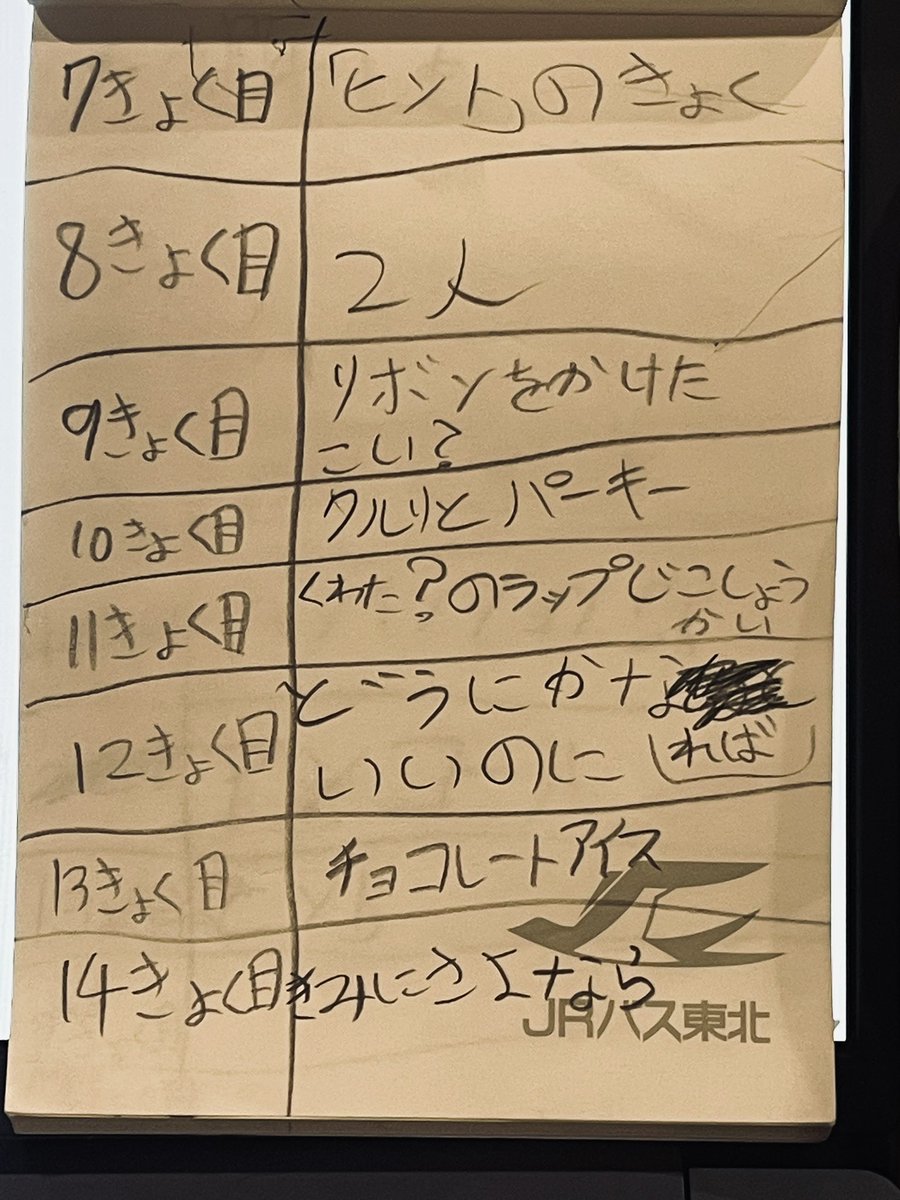 7きょく目 「ヒント」のきょく
8きょく目 2人
9きょく目 リボンをかけた
こい?
10きょく目 クルリとパーキー
11きょく目 くわた?のラップじこしょう
かい
12きょく目 どうにかな
いいのに れば
13きょく目 チョコレートアイス
14きょく目 きみにさよなら
JRバス東北